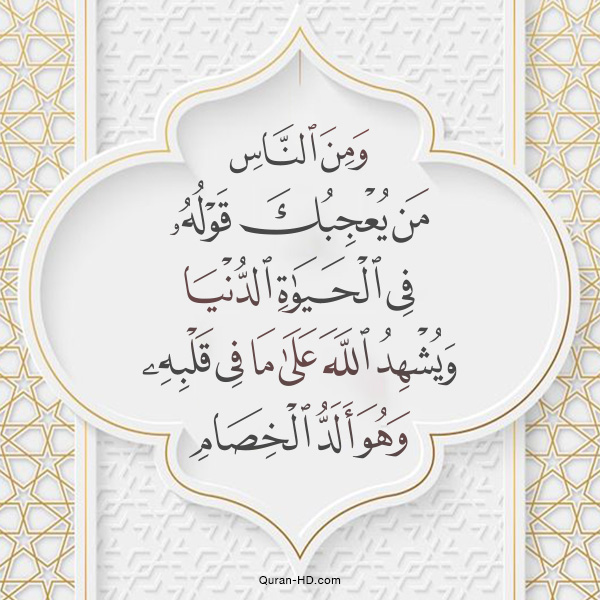 وَمِنَ ٱلنَّاسِ
مَن يُعْجِبُكَ قَوْلُهُۥ
فِى ٱلْحَيَوٰةِ ٱلدُّنْيَا
وَيُشْهِدُ ٱللَّهَ عَلَىٰ مَا فِى قَلْبِهِۦ
وَهُوَ أَلَدُّ ٱلْخِصَامِ
Quran-HD.com